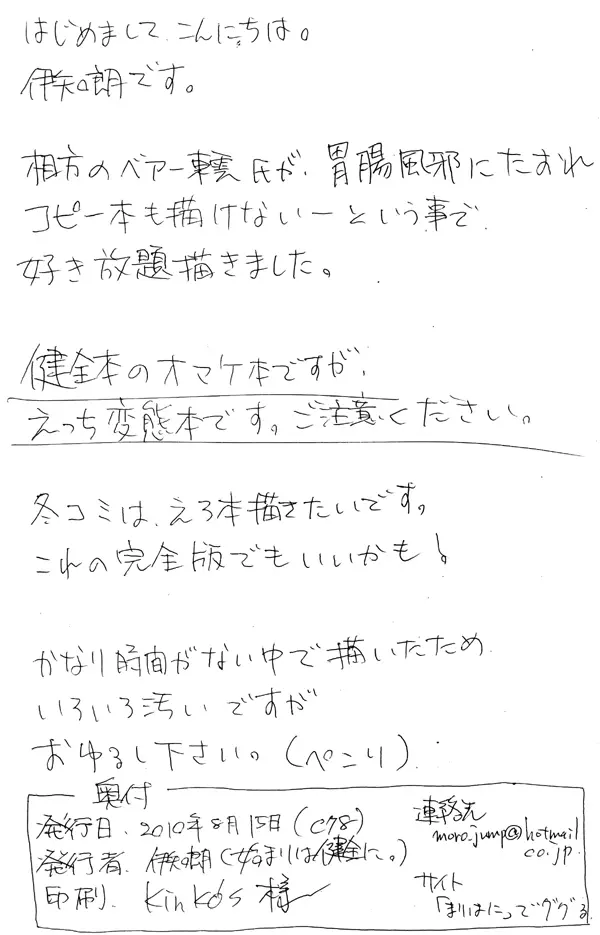 はじめまして、こんにちは。
伊知朗です。
相方のベアー轟氏が、胃腸風邪にたおれ
コピー本も描けないーという事で
好き放題描きました。
健全本のオマケ本ですが、
えっち変態本です。ご注意ください。
冬コミは、えろ本描きたいです。
これの完全版でもいいかも!
かなり時間がない中で描いたため
いろいろ汚いですが
おゆるし下さい。(ぺこり)
奥付
発行日、2010年8月15日(C78)
発行者、伊知朗(始まりは健全に。)
印刷、Kinko's 様
連絡先
moro_jump@hotmail
.co.jp
サイト
「まりはに」でググる